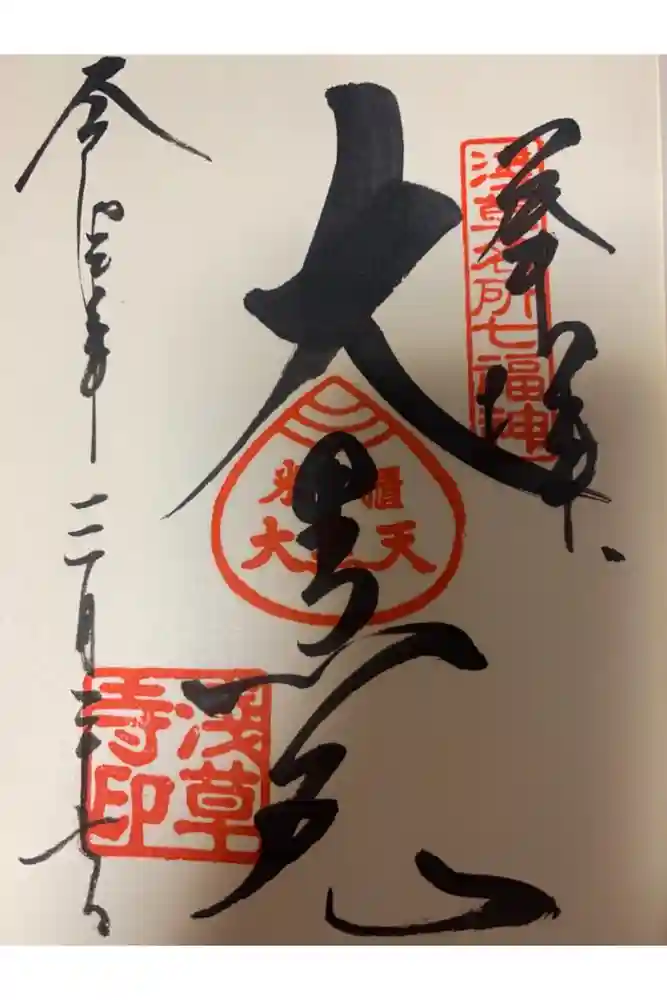 奉拝
浅草名所七福神
大黒天
米櫃
大黒天
令和三年三月二十七日
浅草
寺印